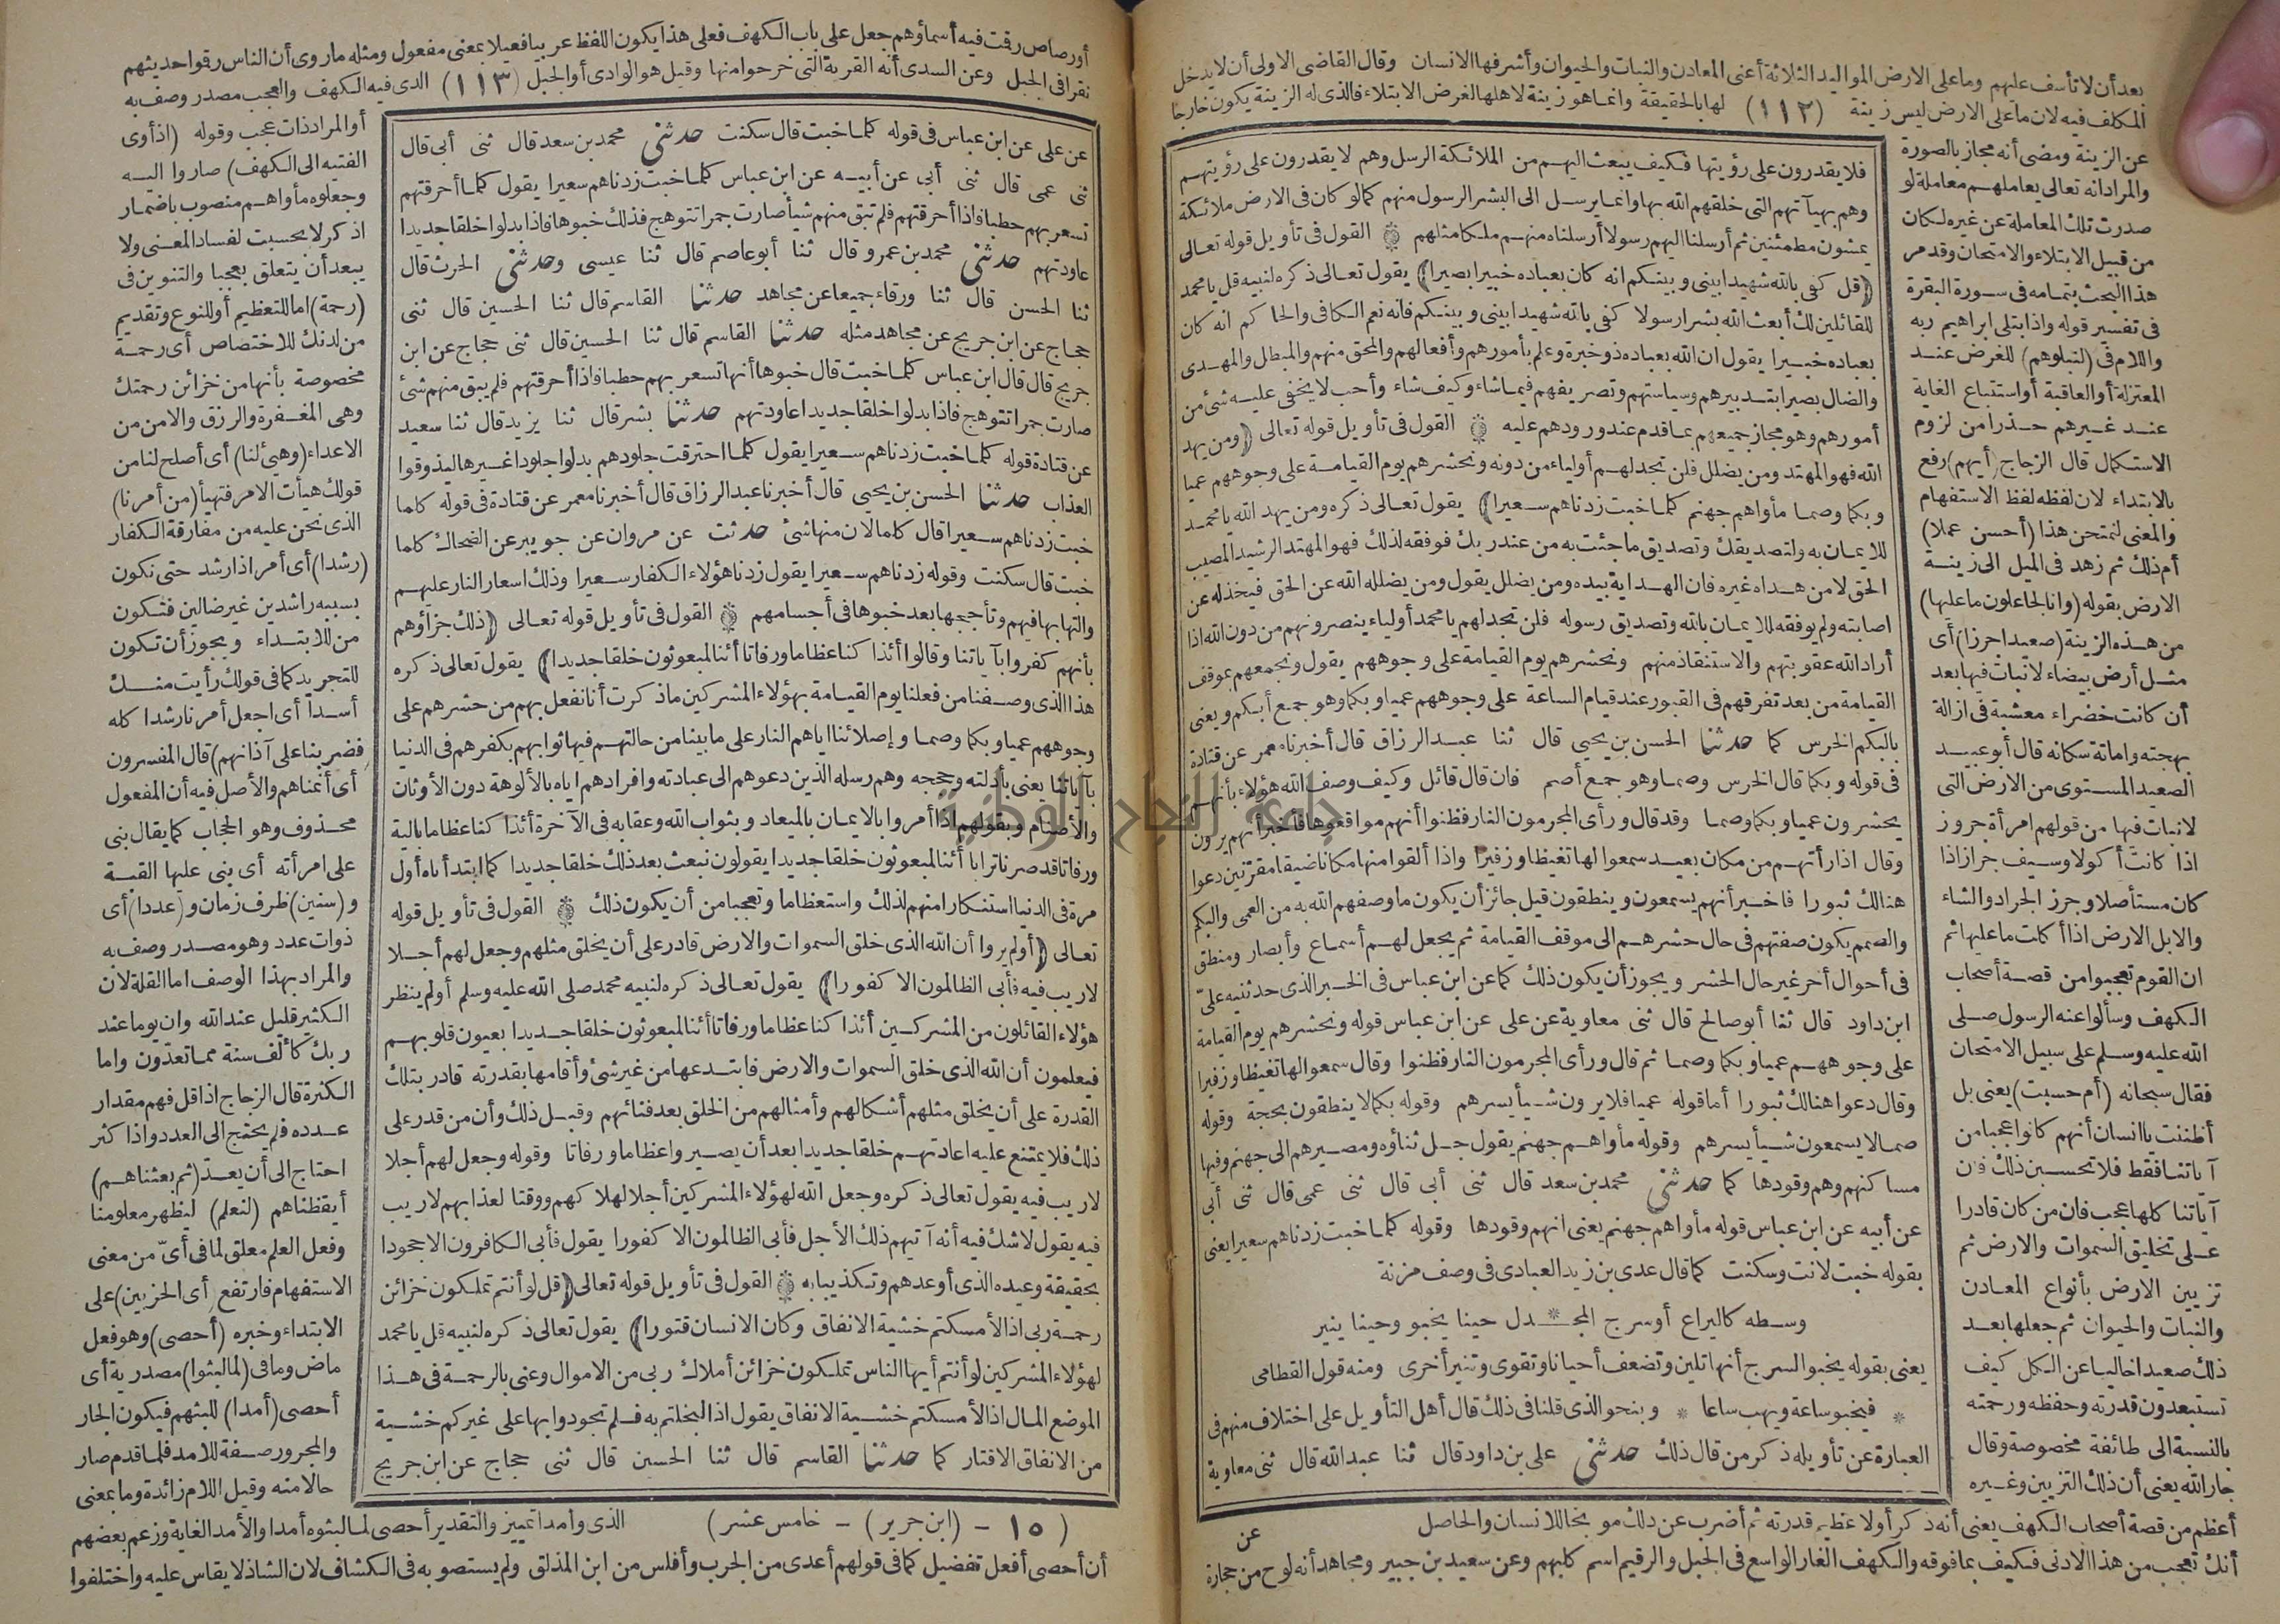 بعد أن لا تأسف عليهم وما على الارض المواليد الثلاثة أعنى المعادن والنبات والحيوان وأشرفها الانسان وقال القاضى الاولى أن لا يدخل
المكلف فيه لان ما على الارض ليس زينة (١١٢) لها بالحقيقة وانما هو زينة لاهلها لغرض الابتلاء فالذى له الزينة يكون خارجا
عن الزينة ومضى أنه مجاز بالصورة
والمراد انه تعالى يعاملهم معاملة لو
صدرت تلك المعاملة عن غيره لكان
من قبيل الابتلاء والامتحان وقد مر
هذا البحث بتمامه فى سورة البقرة
فى تفسير قوله واذ ابتلى ابراهيم ربه
واللام فى (لنبلوهم) للغرض عند
المعتزلة أو العاقبة أو استتباع الغاية
عند غيرهم حذرا من لزوم
الاستكمال قال الزجاج (أيهم) رفع
بالابتداء لان لفظه لفظ الاستفهام
والمعنى لنمتحن هذا (أحسن عملا)
أم ذلك ثم زهد فى الميل الى زينة
الارض بقوله (وانا لجاعلون ما عليها)
من هذه الزينة (صعيدا جرزا) أى
مثل أرض بيضاء لا نبات فيها بعد
أن كانت خضراء معشبة فى ازالة
بهجته واماتة سكانه قال أبو عبيد
الصعيد المستوى من الارض التى
لا نبات فيها من قولهم امرأة جروز
اذا كانت أكولا وسيف جراز اذا
كان مستأصلا وجرز الجراد والشاء
والابل الارض اذا أكلت ما عليها ثم
ان القوم تعجبوا من قصة أصحاب
الكهف وسألوا عنه الرسول صلى
الله عليه وسلم على سبيل الامتحان
فقال سبحانه (أم حسبت) يعنى بل
أظننت يا انسان أنهم كانوا عجبا من
آياتنا فقط فلا تحسبن ذلك فان
آياتنا كلها عجب فان من كان قادرا
على تخليق السموات والارض ثم
تزيين الارض بأنواع المعادن
والنبات والحيوان ثم جعلها بعد
ذلك صعيدا خاليا عن الكل كيف
تستبعدون قدرته وحفظه ورحمته
بالنسبة الى طائفة مخصوصة وقال
جار الله يعنى أن ذلك التزيين وغيره
أعظم من قصة أصحاب الكهف يعنى أنه ذكر أولا عظيم قدرته ثم أضرب عن ذلك موبخا للانسان والحاصل
أنك تعجب من هذا الادنى فكيف بما فوقه والكهف الغار الواسع فى الجبل والرقيم اسم كلبهم وعن سعيد بن جبير ومجاهد أنه لوح من حجارة
فلا يقدرون على رؤيتها فكيف يبعث اليهم من الملائكة الرسل وهم لا يقدرون على رؤيتهم
وهم بهيآتهم التى خلقهم الله بها وانما يرسل الى البشر الرسول منهم كما لو كان فى الارض ملائكة
يمشون مطمئنين ثم أرسلنا اليهم رسولا أرسلناه منهم ملكا مثلهم ۞ القول فى تأويل قوله تعالى
(قل كفى بالله شهيدا بينى وبينكم انه كان بعباده خبيرا بصيرا) يقول تعالى ذكره لنبيه قل يا محمد
للقائلين لك أبعث الله بشرا رسولا كفى بالله شهيدا بينى وبينكم فانه نعم الكافى والحاكم انه كان
بعباده خبيرا يقول ان الله بعباده ذو خبرة وعلم بأمورهم وأفعالهم والمحق منهم والمبطل والمهدى
والضال بصيرا بتدبيرهم وسياستهم وتصريفهم فيما شاء وكيف شاء وأحب لا يخفى عليه شئ من
أمورهم وهو مجاز جميعهم بما قدم عند ورودهم عليه ۞ القول فى تأويل قوله تعالى (ومن يهد
الله فهو المهتد ومن يضلل فلن تجد لهم أولياء من دونه ونحشرهم يوم القيامة على وجوههم عميا
وبكما وصما مأواهم جهنم كلما خبت زدناهم سعيرا) يقول تعالى ذكره ومن يهد الله يا محمد
للايمان به ولتصديقك وتصديق ما جئت به من عند ربك فوفقه لذلك فهو المهتد الرشيد المصيب
الحق لا من هداه غيره فان الهداية بيده ومن يضلل يقول ومن يضلله الله عن الحق فيخذله عن
اصابته ولم يوفقه للايمان بالله وتصديق رسوله فلن تجد لهم يا محمد أولياء ينصرونهم من دون الله اذا
أراد الله عقوبتهم والاستنقاذ منهم ونحشرهم يوم القيامة على وجوههم يقول ونجمعهم بموقف
القيامة من بعد تفرقهم فى القبور عند قيام الساعة على وجوههم عميا وبكما وهو جمع أبكم ويعنى
بالبكم الخرس كما حدثنا الحسن بن يحيى قال ثنا عبد الرزاق قال أخبرنا معمر عن قتادة
فى قوله وبكما قال الخرس وصما وهو جمع أصم فان قال قائل وكيف وصف الله هؤلاء بأنهم
يحشرون عميا وبكما وصما وقد قال ورأى المجرمون النار فظنوا أنهم مواقعوها فأخبر أنهم يرون
وقال اذا رأتهم من مكان بعيد سمعوا لها تغيظا وزفيرا واذا ألقوا منها مكانا ضيقا مقرنين دعوا
هنالك ثبورا فاخبر أنهم يسمعون وينطقون قيل جائز أن يكون ما وصفهم الله به من العمى والبكم
والصمم يكون صفتهم فى حال حشرهم الى موقف القيامة ثم يجعل لهم أسماع وأبصار ومنطق
فى أحوال أخر غير حال الحشر ويجوز أن يكون ذلك كما عن ابن عباس فى الخبر الذى حدثنيه علىّ
ابن داود قال ثنا أبو صالح قال ثنى معاوية عن على عن ابن عباس قوله ونحشرهم يوم القيامة
على وجوههم عميا وبكما وصما ثم قال ورأى المجرمون النار فظنوا وقال سمعوا لها تغيظا وزفيرا
وقال دعوا هنالك ثبورا أما قوله عميا فلا يرون شيأ يسرهم وقوله بكما لا ينطقون بحجة وقوله
صما لا يسمعون شيأ يسرهم وقوله مأواهم جهنم يقول جل ثناؤه ومصيرهم الى جهنم وفيها
مساكنهم وهم وقودها كما حدثنى محمد بن سعد قال ثنى أبى قال ثنى عمى قال ثنى أبى
عن أبيه عن ابن عباس قوله مأواهم جهنم يعنى انهم وقودها وقوله كلما خبت زدناهم سعيرا يعنى
بقوله خبت لانت وسكنت كما قال عدى بن زيد العبادى فى وصف مزنة
وسطه كاليراع أو سرج المجـ * ـدل حينا يخبو وحينا ينير
يعنى بقوله يخبو السرج أنها تلين وتضعف أحيانا وتقوى وتنير أخرى ومنه قول القطامى
* فيخبو ساعة ويهب ساعا * وبنحو الذى قلنا فى ذلك قال أهل التأويل على اختلاف منهم فى
العبارة عن تأويله ذكر من قال ذلك حدثنى على بن داود قال ثنا عبد الله قال ثنى معاوية
عن
أو رصاص رقت فيه أسماؤهم جعل على باب الكهف فعلى هذا يكون اللفظ عربيا فعيلا بمعنى مفعول ومثله ما روى أن الناس رقوا حديثهم
نقرا فى الجبل وعن السدى أنه القرية التى خرجوا منها وقيل هو الوادى أو الجبل (١١٣) الذى فيه الكهف والعجب مصدر وصف به
أو المراد ذات عجب وقوله (اذ أوى
الفتية الى الكهف) صاروا اليه
وجعلوه مأواهم منصوب باضمار
اذكر لا بحسبت لفساد المعنى ولا
يبعد أن يتعلق بعجبا والتنوين فى
(رحمة) اما للتعظيم أو للنوع وتقديم
من لدنك للاختصاص أى رحمة
مخصوصة بأنها من خزائن رحمتك
وهى المغفرة والرزق والامن من
الاعداء (وهيئ لنا) أى أصلح لنا من
قولك هيأت الامر فتهيأ (من أمرنا)
الذى نحن عليه من مفارقة الكفار
(رشدا) أى أمر اذا رشد حتى نكون
بسببه راشدين غير ضالين فتكون
من للابتداء ويجوز أن تكون
للتجريد كما فى قولك رأيت منك
أسدا أى اجعل أمرنا رشدا كله
(فضربنا على آذانهم) قال المفسرون
أى أنمناهم والأصل فيه أن المفعول
محذوف وهو الحجاب كما يقال بنى
على امرأته أى بنى عليها القبة
و(سنين) ظرف زمان و(عددا) أى
ذوات عدد وهو مصدر وصف به
والمراد بهذا الوصف اما القلة لان
الكثير قليل عند الله وان يوما عند
ربك كألف سنة مما تعدّون واما
الكثرة قال الزجاج اذا قل فهم مقدار
عدده فلم يحتج الى العدد واذا كثر
احتاج الى أن يعدّ (ثم بعثناهم)
أيقظناهم (لنعلم) ليظهر معلومنا
وفعل العلم معلق لما فى أىّ من معنى
الاستفهام فارتفع (أى الحزبين) على
الابتداء وخبره (أحصى) وهو فعل
ماض وما فى (لما لبثوا) مصدرية أى
أحصى (أمدا) للبثهم فيكون الجار
والمجرور صفة للامد فلما قدم صار
حالا منه وقيل اللام زائدة وما بمعنى
الذى وأمدا تمييز والتقدير أحصى لما لبثوه أمدا والأمد الغاية وزعم بعضهم
أن أحصى أفعل تفضيل كما فى قولهم أعدى من الجرب وأفلس من ابن المذلق ولم يستصوبه فى الكشاف لان الشاذ لا يقاس عليه واختلفوا
عن على عن ابن عباس فى قوله كلما خبت قال سكنت حدثنى محمد بن سعد قال ثنى أبى قال
ثنى عمى قال ثنى أبى عن أبيه عن ابن عباس كلما خبت زدناهم سعيرا يقول كلما أحرقتهم
تسعر بهم حطبا فاذا أحرقتهم فلم تبق منهم شيأ صارت جمرا تتوهج فذلك خبوها فاذا بدلوا خلقا جديدا
عاودتهم حدثنى محمد بن عمرو قال ثنا أبو عاصم قال ثنا عيسى وحدثنى الحرث قال
ثنا الحسن قال ثنا ورقاء جميعا عن مجاهد حدثنا القاسم قال ثنا الحسين قال ثنى
حجاج عن ابن جريج عن مجاهد مثله حدثنا القاسم قال ثنا الحسين قال ثنى حجاج عن ابن
جريج قال قال ابن عباس كلما خبت قال خبوها أنها تسعر بهم حطبا فاذا أحرقتهم فلم يبق منهم شئ
صارت جمرا تتوهج فاذا بدلوا خلقا جديدا عاودتهم حدثنا بشر قال ثنا يزيد قال ثنا سعيد
عن قتادة قوله كلما خبت زدناهم سعيرا يقول كلما احترقت جلودهم بدلوا جلودا غيرها ليذوقوا
العذاب حدثنا الحسن بن يحيى قال أخبرنا عبد الرزاق قال أخبرنا معمر عن قتادة فى قوله كلما
خبت زدناهم سعيرا قال كلما لان منها شئ حدثت عن مروان عن جويبر عن الضحاك كلما
خبت قال سكنت وقوله زدناهم سعيرا يقول زدنا هؤلاء الكفار سعيرا وذلك اسعار النار عليهم
والتهابها فيهم وتأججها بعد خبوها فى أجسامهم ۞ القول فى تأويل قوله تعالى (ذلك جزاؤهم
بأنهم كفروا بآياتنا وقالوا أئذا كنا عظاما ورفاتا أئنا لمبعوثون خلقا جديدا) يقول تعالى ذكره
هذا الذى وصفنا من فعلنا يوم القيامة بهؤلاء المشركين ما ذكرت أنا نفعل بهم من حشرهم على
وجوههم عميا وبكما وصما وإصلائنا اياهم النار على ما بينا من حالتهم فيها ثوابهم بكفرهم فى الدنيا
بآياتنا يعنى بأدلته وحججه وهم رسله الذين دعوهم الى عبادته وافرادهم اياه بالألوهة دون الأوثان
والأصنام وبقولهم اذا أمروا بالايمان بالميعاد وبثواب الله وعقابه فى الآخرة أئذا كنا عظاما بالية
ورفاتا قد صرنا ترابا أئنا لمبعوثون خلقا جديدا يقولون نبعث بعد ذلك خلقا جديدا كما ابتدأناه أول
مرة فى الدنيا استنكارا منهم لذلك واستعظاما وتعجبا من أن يكون ذلك ۞ القول فى تأويل قوله
تعالى (أولم يروا أن الله الذى خلق السموات والارض قادر على أن يخلق مثلهم وجعل لهم أجلا
لا ريب فيه فأبى الظالمون الا كفورا) يقول تعالى ذكره لنبيه محمد صلى الله عليه وسلم أولم ينظر
هؤلاء القائلون من المشركين أئذا كنا عظاما ورفاتا أئنا لمبعوثون خلقا جديدا بعيون قلوبهم
فيعلمون أن الله الذى خلق السموات والارض فابتدعها من غير شئ وأقامها بقدرته قادر بتلك
القدرة على أن يخلق مثلهم أشكالهم وأمثالهم من الخلق بعد فنائهم وقبل ذلك وأن من قدر على
ذلك فلا يمتنع عليه اعادتهم خلقا جديدا بعد أن يصيروا عظاما ورفاتا وقوله وجعل لهم أجلا
لا ريب فيه يقول تعالى ذكره وجعل الله لهؤلاء المشركين أجلا لهلاكهم ووقتا لعذابهم لا ريب
فيه يقول لا شك فيه أنه آتيهم ذلك الأجل فأبى الظالمون الا كفورا يقول فأبى الكافرون الا جحودا
بحقيقة وعيده الذى أوعدهم وتكذيبا به ۞ القول فى تأويل قوله تعالى (قل لو أنتم تملكون خزائن
رحمة ربى اذا لأمسكتم خشية الانفاق وكان الانسان قتورا) يقول تعالى ذكره لنبيه قل يا محمد
لهؤلاء المشركين لو أنتم أيها الناس تملكون خزائن أملاك ربى من الاموال وعنى بالرحمة فى هذا
الموضع المال اذا لأمسكتم خشية الانفاق يقول اذا لبخلتم به فلم تجودوا بها على غيركم خشية
من الانفاق الاقتار كما حدثنا القاسم قال ثنا الحسين قال ثنى حجاج عن ابن جريج
(١٥ - (ابن جرير) - خامس عشر)
جامعة النجاح الوطنية